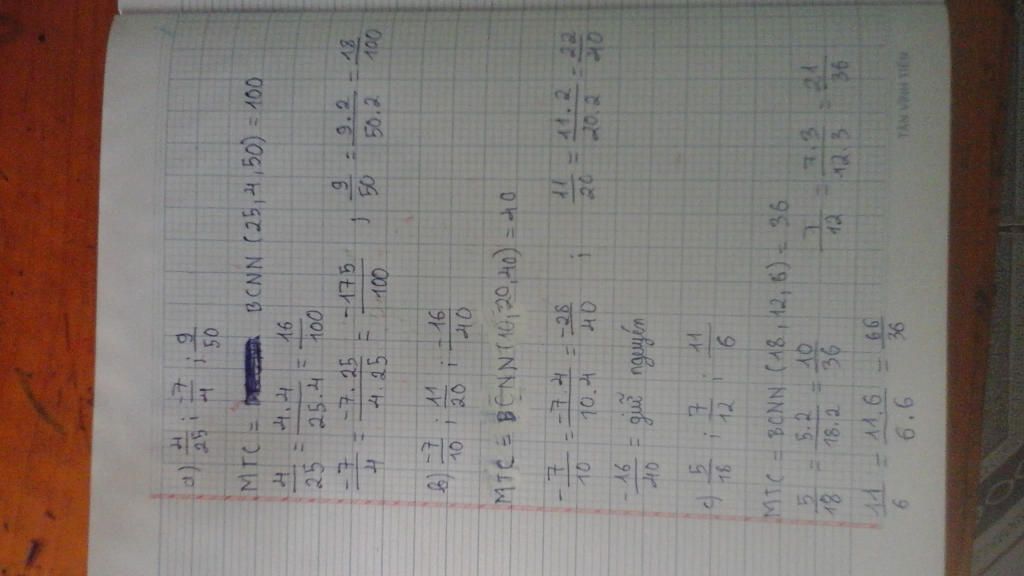 a) 4/25 ; -7/4 ; 9/50
MTC = BCNN (25,4,50) = 100
4/25 = 4.4/25.4 = 16/100
-7/4 = -7.25/4.25 = -175/100 ; 9/50 = 9.2/50.2 = 18/100
b) -7/10 ; 11/20 ; -16/40
MTC = BCNN (10,20,40) = 40
-7/10 = -7.4/10.4 = -28/40 ; 11/20 = 11.2/20.2 = 22/40
-16/40 = giữ nguyên
c) 5/18 ; 7/12 ; 11/6
MTC = BCNN (18,12,6) = 36
5/18 = 5.2/18.2 = 10/36 7/12 = 7.3/12.3 = 21/36
11/6 = 11.6/6.6 = 66/36